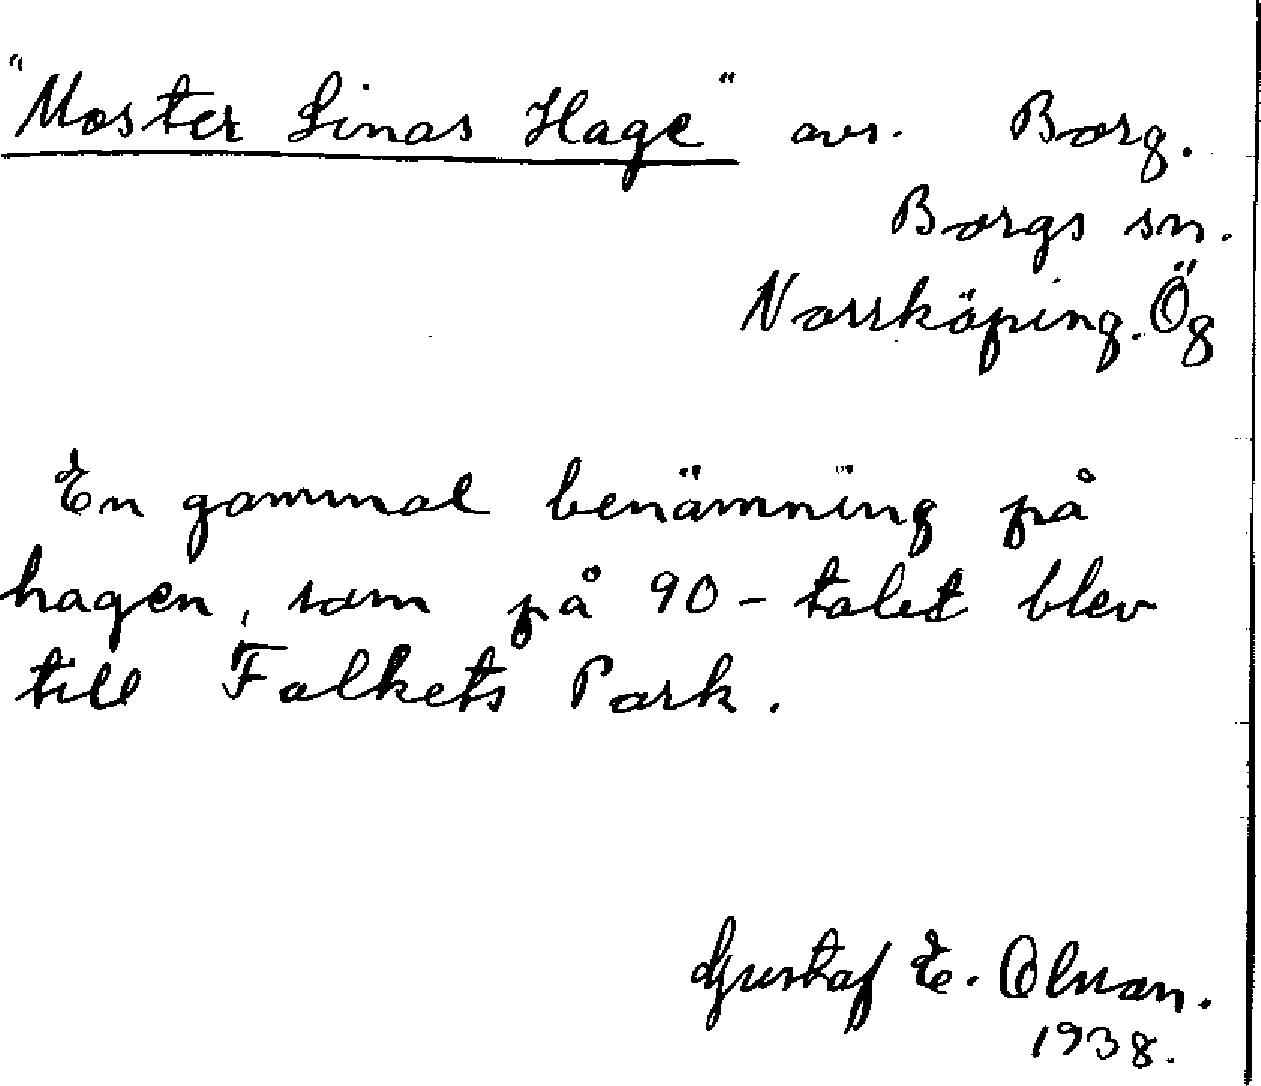 "Moster Linas Hage" avs. Borg.
Borgs sn.
Norrköping. Ög
En gammal benämning på
hagen, som på 90-talet blev
till Folkets Park.
Gustaf E. Olsson.
1938.